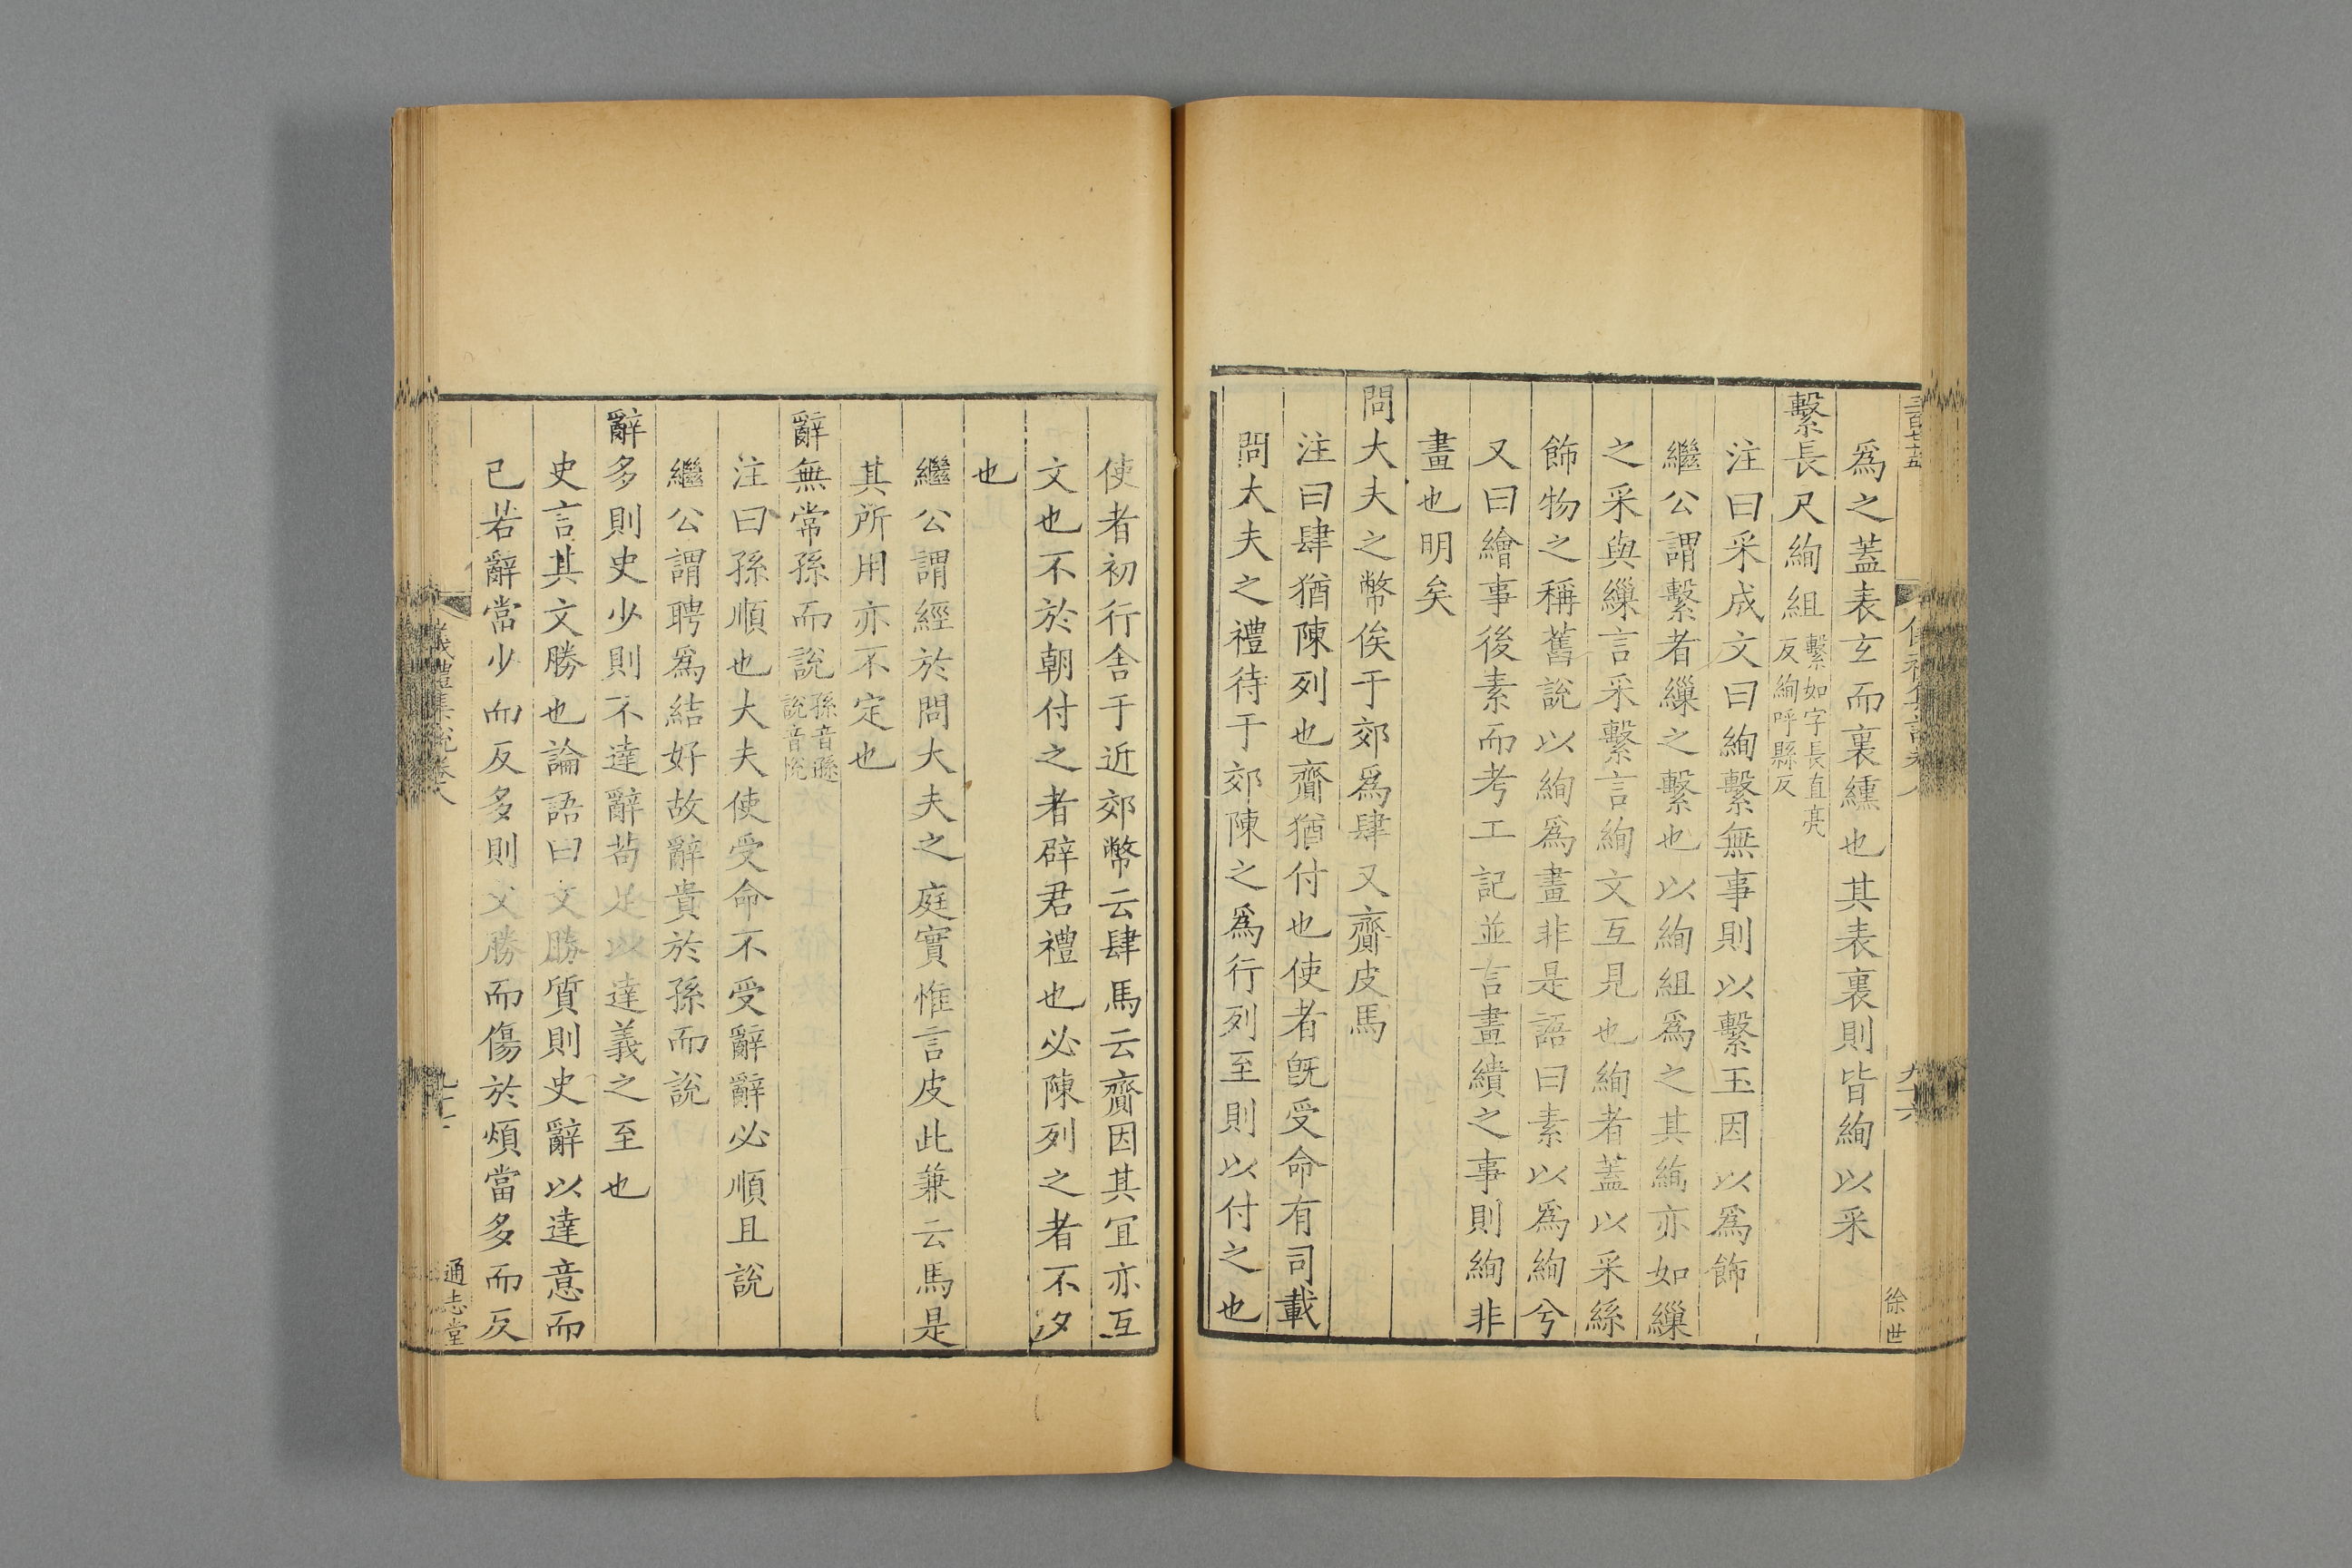 三百七十五
爲之蓋表玄而裏纁也其表裏則皆絢以采
繫長尺絢組繫如字長直亮反絢呼縣反
注曰采成文曰絢繫無事則以繫玉因以爲飾
繼公謂繫者繅之繫也以絢組爲之其絢亦如繅
之采與繅言采繫言絢文互見也絢者蓋以采絲
飾物之稱舊說以絢爲畫非是語曰素以爲絢兮
又曰繪事後素而考工記並言畫繢之事則絢非
畫也明矣
問大夫之幣俟于郊爲肆又齎皮馬
注曰肆猶陳列也齎猶付也使者旣受命有司載
問大夫之禮待于郊陳之爲行列至則以付之也
九十六
徐世
使者初行舍于近郊幣云肆馬云齎因其宜亦互
文也不於朝付之者辟君禮也必陳列之者不夕
也
繼公謂經於問大夫之庭實惟言皮此兼云馬是
其所用亦不定也
辭無常孫而說孫音遜說音悅
注曰孫順也大夫使受命不受辭辭必順且說
繼公謂聘爲結好故辭貴於孫而說
辭多則史少則不達辭苟足以達義之至也
史言其文勝也論語曰文勝質則史辭以達意而
已若辭當少而反多則文勝而傷於煩當多而反
儀禮集說卷八
通志堂